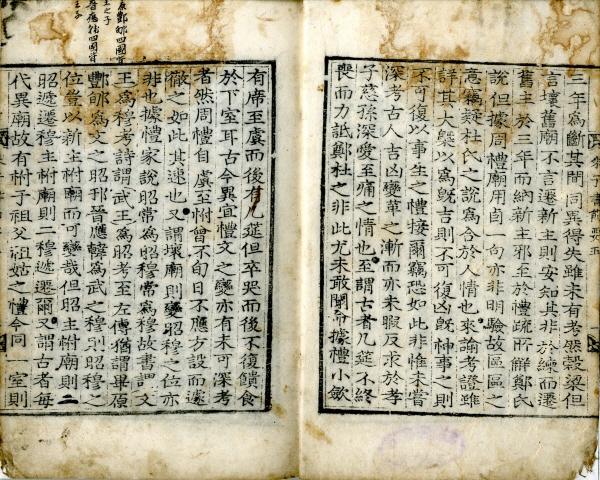 朱子書節要五
三年爲斷其間同異得失雖未有考然穀梁但
言壞舊廟不言遷新主則安知其非於練而遷
舊主於三年而納新主邪至於禮疏所解鄭氏
說但據周禮廟用卣一句亦非明驗故區區之
意竊疑杜氏之說爲合於人情也來諭考證雖
詳其大槩以爲旣吉則不可復凶旣神事之則
不可復以事生之禮接爾竊恐如此非惟未嘗
深考古人吉凶變革之漸而亦未暇反求於孝
子慈孫深愛至痛之情也至謂古者几筵不終
喪而力詆鄭杜之非此尤未敢聞命據禮小斂
有席至虞而後有几筵但卒哭而後不復饋食
於下室耳古今異宜禮文之變亦有未可深考
者然周禮自虞至祔曾不旬日不應方設而遽
徹之如此其速也又謂壞廟則變昭穆之位亦
非也據禮家說昭常爲昭穆常爲穆故書謂文
王爲穆考詩謂武王爲昭考至左傳猶謂畢原
酆郇爲文之昭邘晉應韓爲武之穆則昭穆之
位豈以新主祔廟而可變哉但昭主祔廟則二
昭遞遷穆主祔廟則二穆遞遷爾又謂古者每
代異廟故有祔于祖父祖姑之禮今同一室則
原酆郇四國皆
王之子
晉應韓四國皆
王子